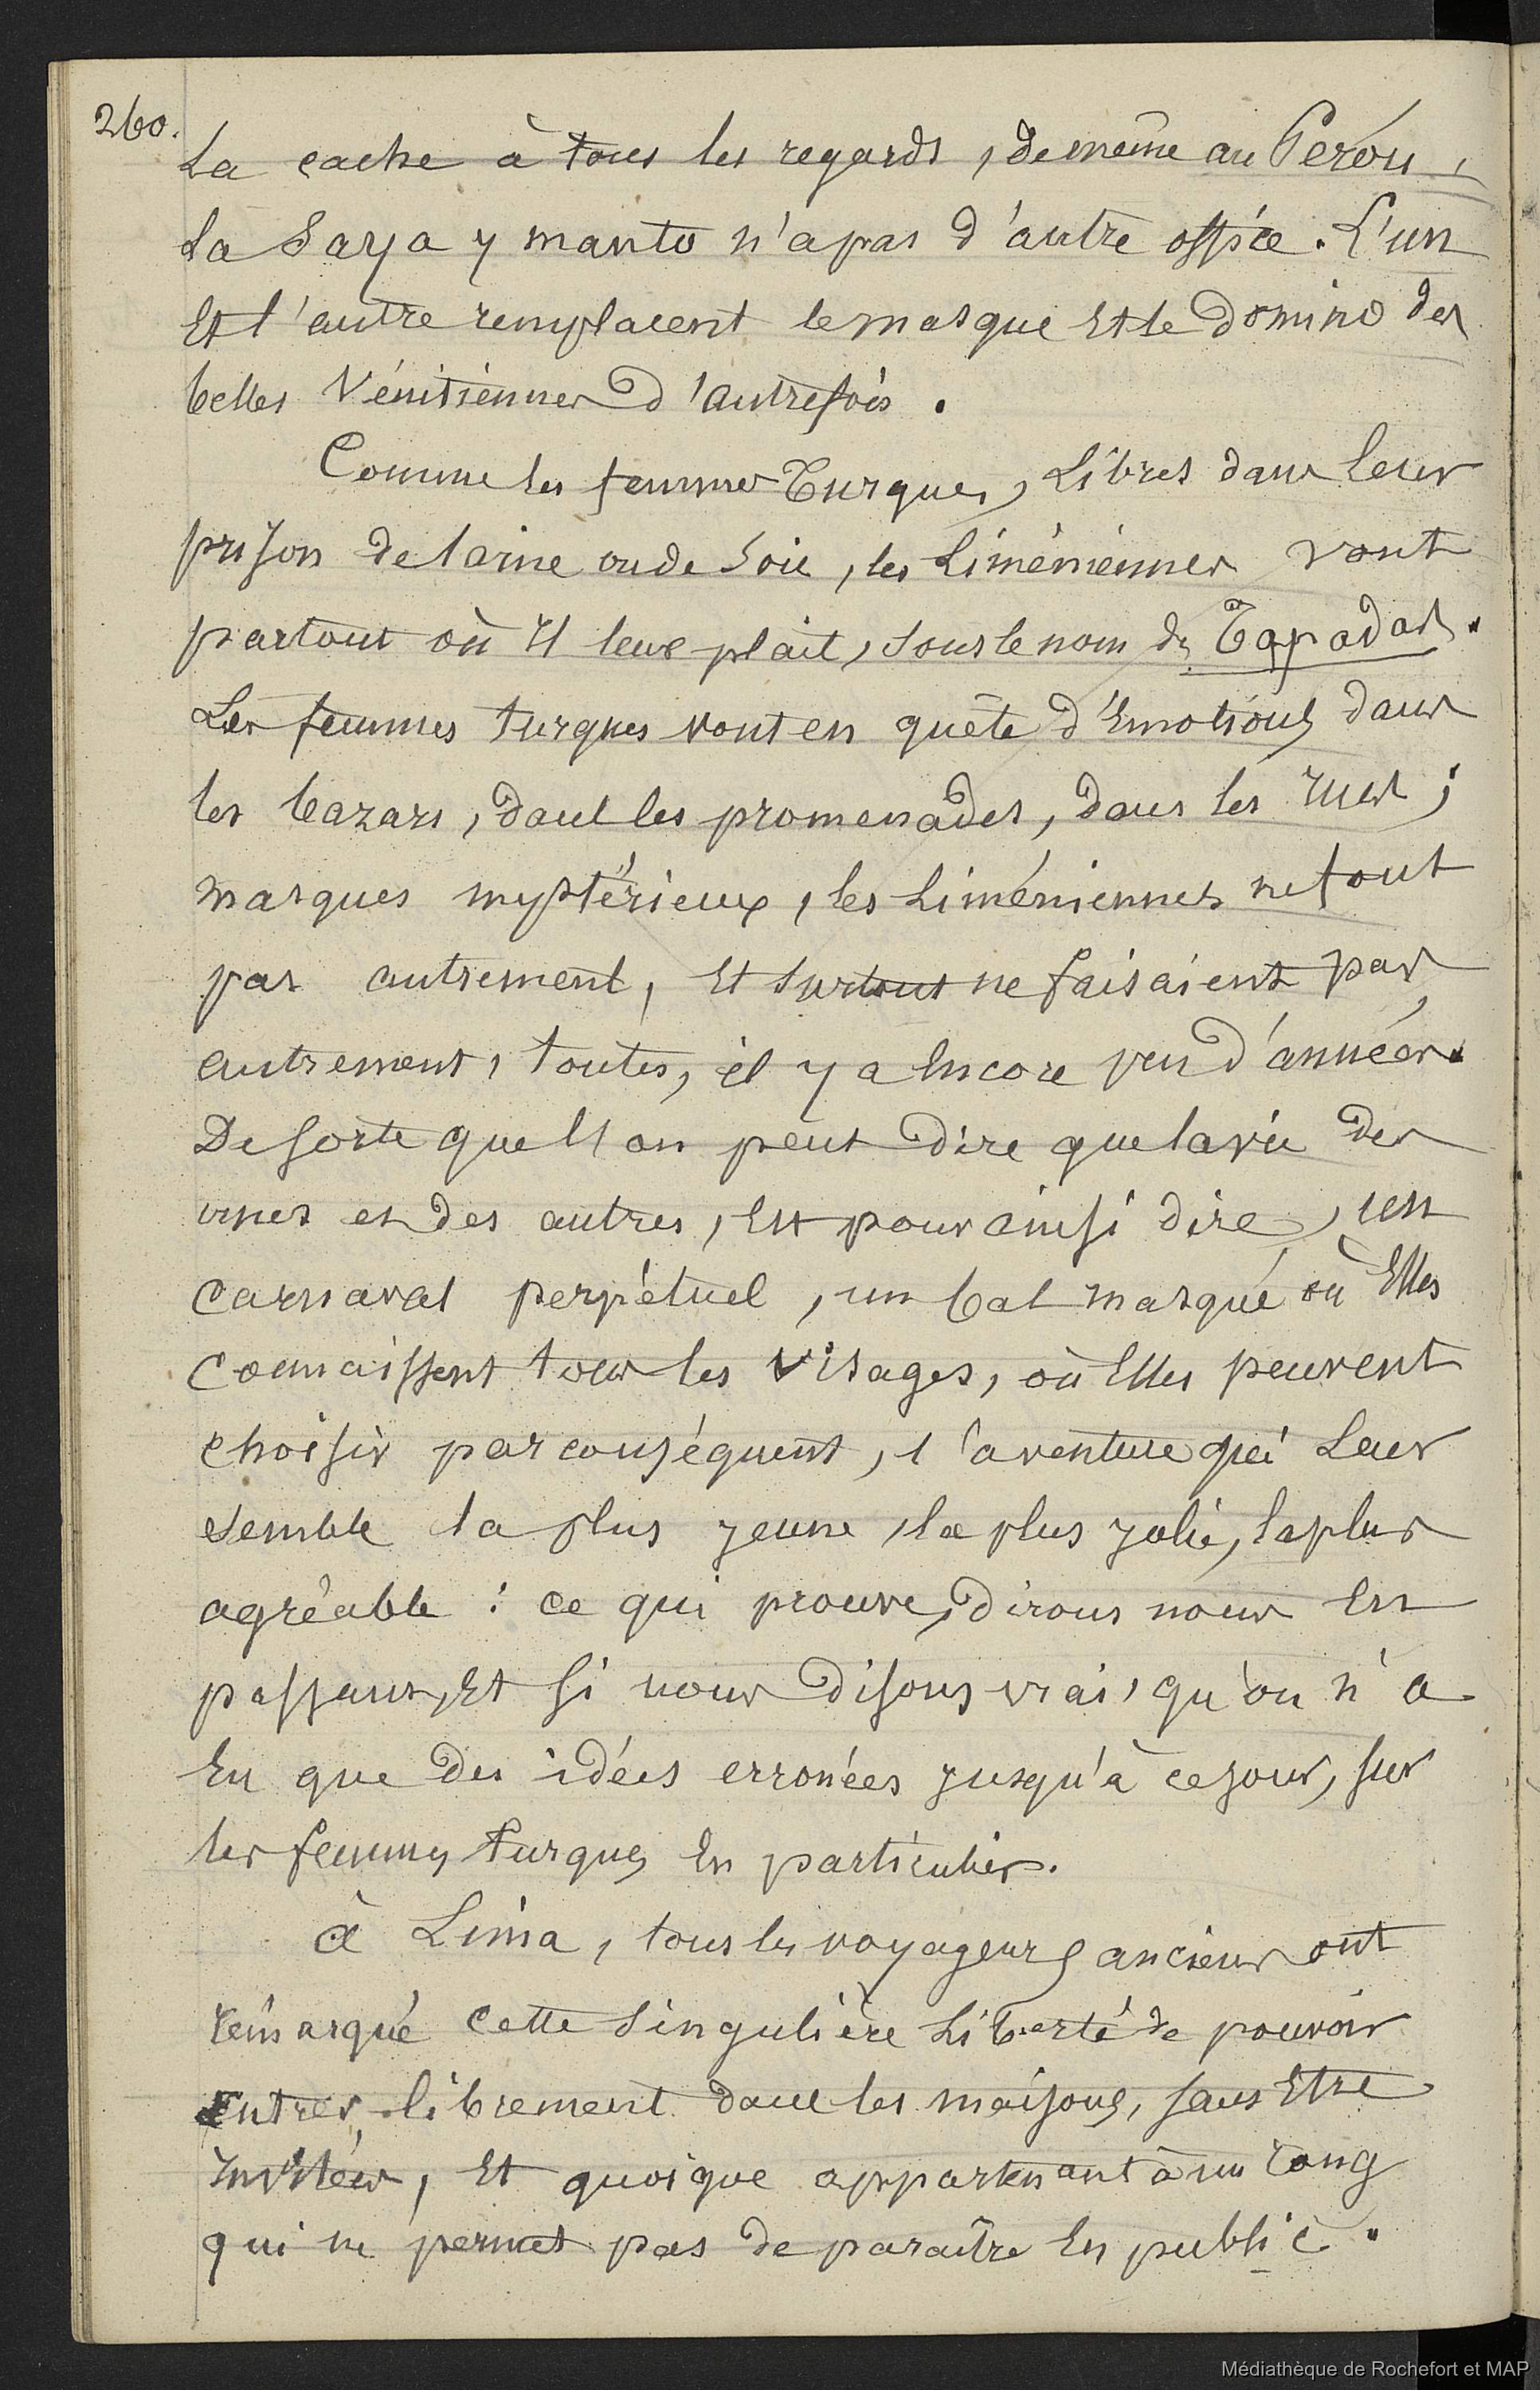 260.
La cache à tous les regards, de même au Pérou,
la Saya y manto n'a pas d'autre office. L'un
Et l'autre remplacent le masque Et le domino des
belles Vénitiennes d'autrefois.
Comme les femmes Turques, Libres dans leur
prison de laine ou de Soie, les Liméniennes vont
partout où Il leur plait, sous le nom de Tapadas.
Les femmes turques vont en quête d'Emotions dans
les bazars, dans les promenades, dans les rues ;
masques mystérieux, les Liméniennes ne font
pas autrement, Et surtout ne faisaient pas
autrement, toutes, il y a Encore peu d'années.
De sorte que l'on peut dire que la vie des
unes et des autres, Est pour ainsi dire, un
Carnaval perpétuel, un bal masqué où Elles
Connaissent tous les Visages, où Elles peuvent
choisir par conséquent, l'aventure qui Leur
semble la plus jeune, la plus jolie, la plus
agréable : ce qui prouve, dirons nous En
passant, Et si nous disons vrai, qu'on n'a
Eu que des idées erronées jusqu'à ce jour, sur
les femmes turques En particulier.
à Lima, tous les voyageurs anciens ont
remarqué Cette Singulière Liberté de pouvoir
Entrer librement dans les maisons, sans Etre
Invitées, Et quoique appartenant à un rang
qui ne permet pas de paraître En public.
Médiathèque de Rochefort et MAP